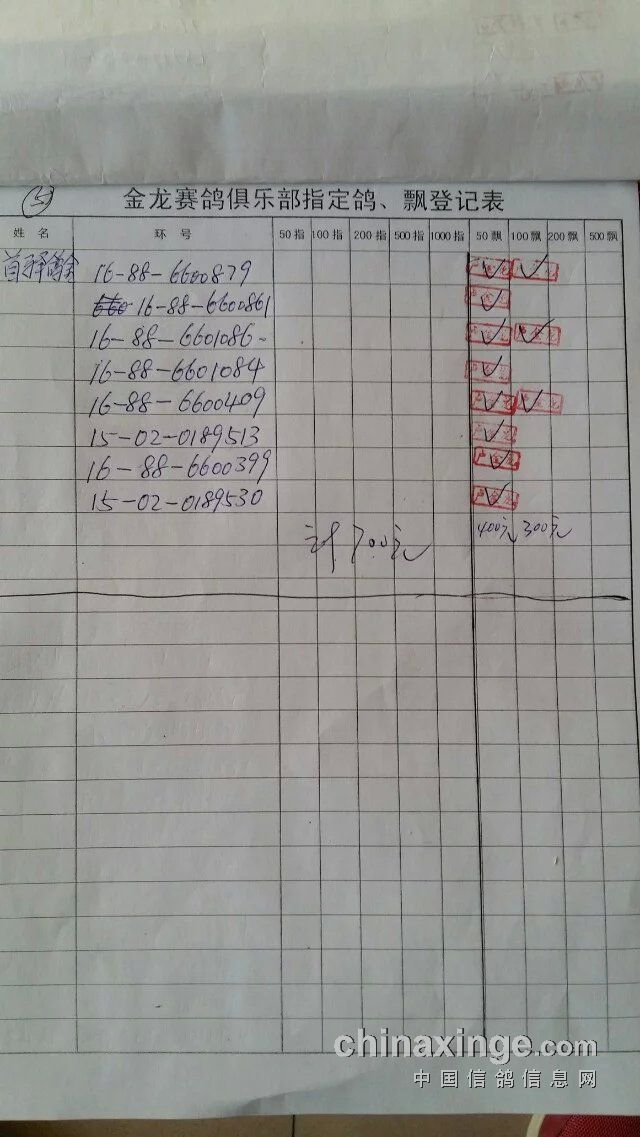 5
金龙赛鸽俱乐部指定鸽、飘登记表
姓名 环号 50指 100指 200指 500指 1000指 50飘 100飘 200飘 500飘
16-88-6600879
16-88-6600861
16-88-6601086
16-88-6601084
16-88-6600409
15-02-0189513
16-88-6600399
15-02-0189530
400元 300元
计700元
chinaxinge.com
中国信鸽信息网